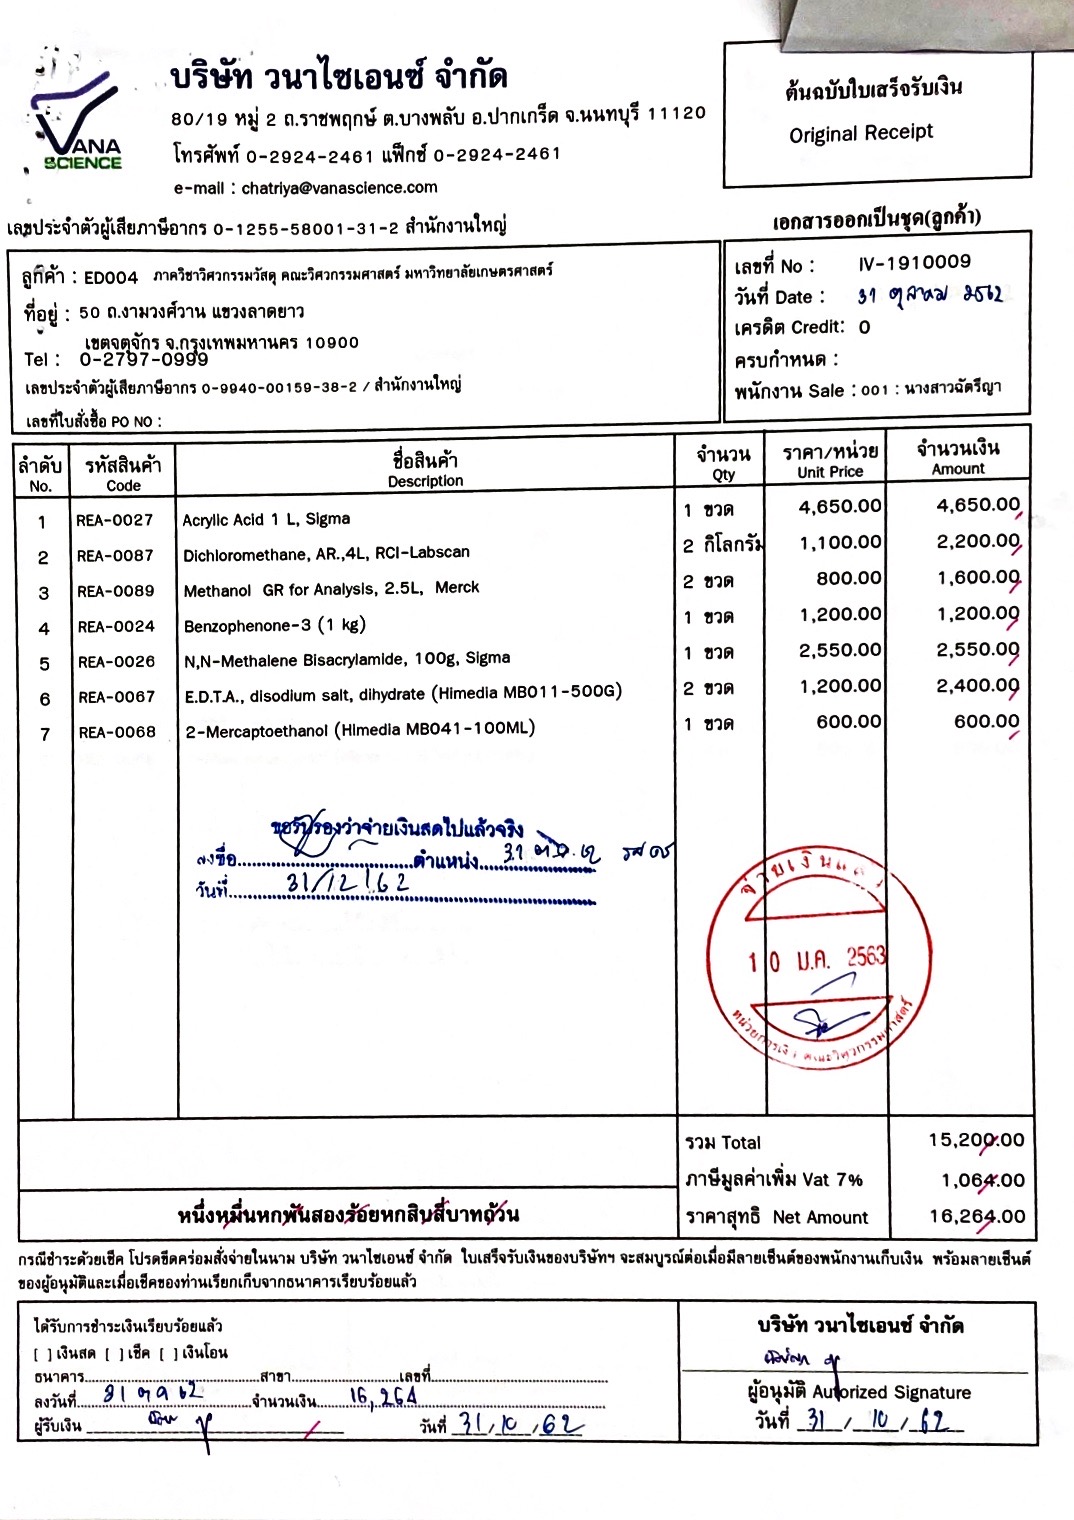 บริษัท วนาไซเอนซ์ จำกัด
80/19 หมู่ 2 ถ.ราชพฤกษ์ ต.บางพลับ อ.ปากเกร็ด จ.นนทบุรี 11120
โทรศัพท์ 0-2924-2461 แฟ็กซ์ 0-2924-2461
e-mail : chatriya@vanascience.com
VANA
SCIENCE
ต้นฉบับใบเสร็จรับเงิน
Original Receipt
เลขประจำตัวผู้เสียภาษีอากร 0-1255-58001-31-2 สำนักงานใหญ่
เอกสารออกเป็นชุด(ลูกค้า)
ลูกค้า : ED004 ภาควิชาวิศวกรรมวัสดุ คณะวิศวกรรมศาสตร์ มหาวิทยาลัยเกษตรศาสตร์
ที่อยู่ : 50 ถ.งามวงศ์วาน แขวงลาดยาว
เขตจตุจักร จ.กรุงเทพมหานคร 10900
Tel : 0-2797-0999
เลขประจำตัวผู้เสียภาษีอากร 0-9940-00159-38-2 / สำนักงานใหญ่
เลขที่ใบสั่งซื้อ PO NO :
เลขที่ No : IV-1910009
วันที่ Date : 31 ตุลาคม 2562
เครดิต Credit: 0
ครบกำหนด :
พนักงาน Sale : 001 : นางสาวฉัตรียา
ลำดับ รหัสสินค้า ชื่อสินค้า จำนวน ราคา/หน่วย จำนวนเงิน
No. Code Description Qty Unit Price Amount
1 REA-0027 Acrylic Acid 1 L, Sigma 1 ขวด 4,650.00 4,650.00
2 REA-0087 Dichloromethane, AR.,4L, RCI-Labscan 2 กิโลกรัม 1,100.00 2,200.00
3 REA-0089 Methanol GR for Analysis, 2.5L, Merck 2 ขวด 800.00 1,600.00
4 REA-0024 Benzophenone-3 (1 kg) 1 ขวด 1,200.00 1,200.00
5 REA-0026 N,N-Methalene Bisacrylamide, 100g, Sigma 1 ขวด 2,550.00 2,550.00
6 REA-0067 E.D.T.A., disodium salt, dihydrate (Himedia MB011-500G) 2 ขวด 1,200.00 2,400.00
7 REA-0068 2-Mercaptoethanol (Himedia MB041-100ML) 1 ขวด 600.00 600.00
ขอรับรองว่าจ่ายเงินสดไปแล้วจริง
ลงชื่อ..............................ตำแหน่ง..............................
วันที่ 31/12/62
จ่ายเงินแล้ว
10 ม.ค. 2563
หน่วยการเงิน คณะวิศวกรรมศาสตร์
รวม Total 15,200.00
ภาษีมูลค่าเพิ่ม Vat 7% 1,064.00
หนึ่งหมื่นหกพันสองร้อยหกสิบสี่บาทถ้วน ราคาสุทธิ Net Amount 16,264.00
กรณีชำระด้วยเช็ค โปรดขีดคร่อมสั่งจ่ายในนาม บริษัท วนาไซเอนซ์ จำกัด ใบเสร็จรับเงินของบริษัทฯ จะสมบูรณ์ต่อเมื่อมีลายเซ็นต์ของพนักงานเก็บเงิน พร้อมลายเซ็นต์
ของผู้อนุมัติและเมื่อเช็คของท่านเรียกเก็บจากธนาคารเรียบร้อยแล้ว
ได้รับการชำระเงินเรียบร้อยแล้ว
[ ] เงินสด [ ] เช็ค [ ] เงินโอน
ธนาคาร..............................สาขา..............................เลขที่..............................
ลงวันที่ 31 ตค 62 จำนวนเงิน 16,264
ผู้รับเงิน วันที่ 31/10/62
บริษัท วนาไซเอนซ์ จำกัด
ผู้อนุมัติ Autorized Signature
วันที่ 31/10/62